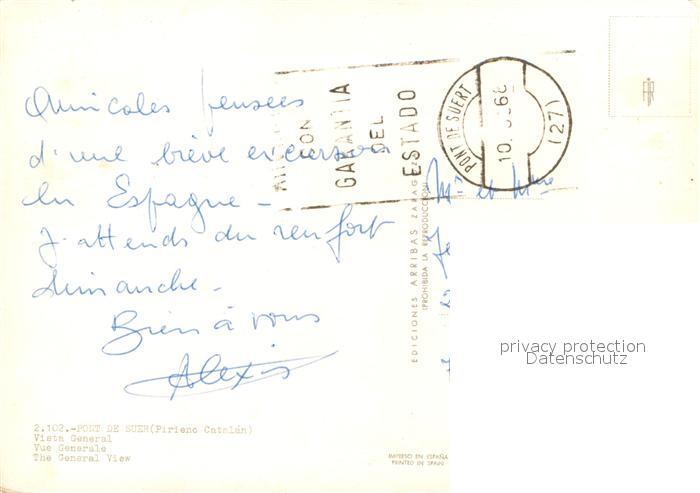 Amicales pensées
d'une brève excursion
en Espagne -
J'attends du renfort
dimanche -
Bien à vous
Alexis
CON
GARANTIA
DEL
ESTADO
PONT DE SUERT
(27)
Mr et Mme
EDICIONES ARRIBAS ZARAGOZA
(PROHIBIDA LA REPRODUCCION)
privacy protection
Datenschutz
2.102.-PONT DE SUER(Pirieno Catalán)
Vista General
Vue Generale
The General View
IMPRESO EN ESPAÑA
PRINTED IN SPAIN